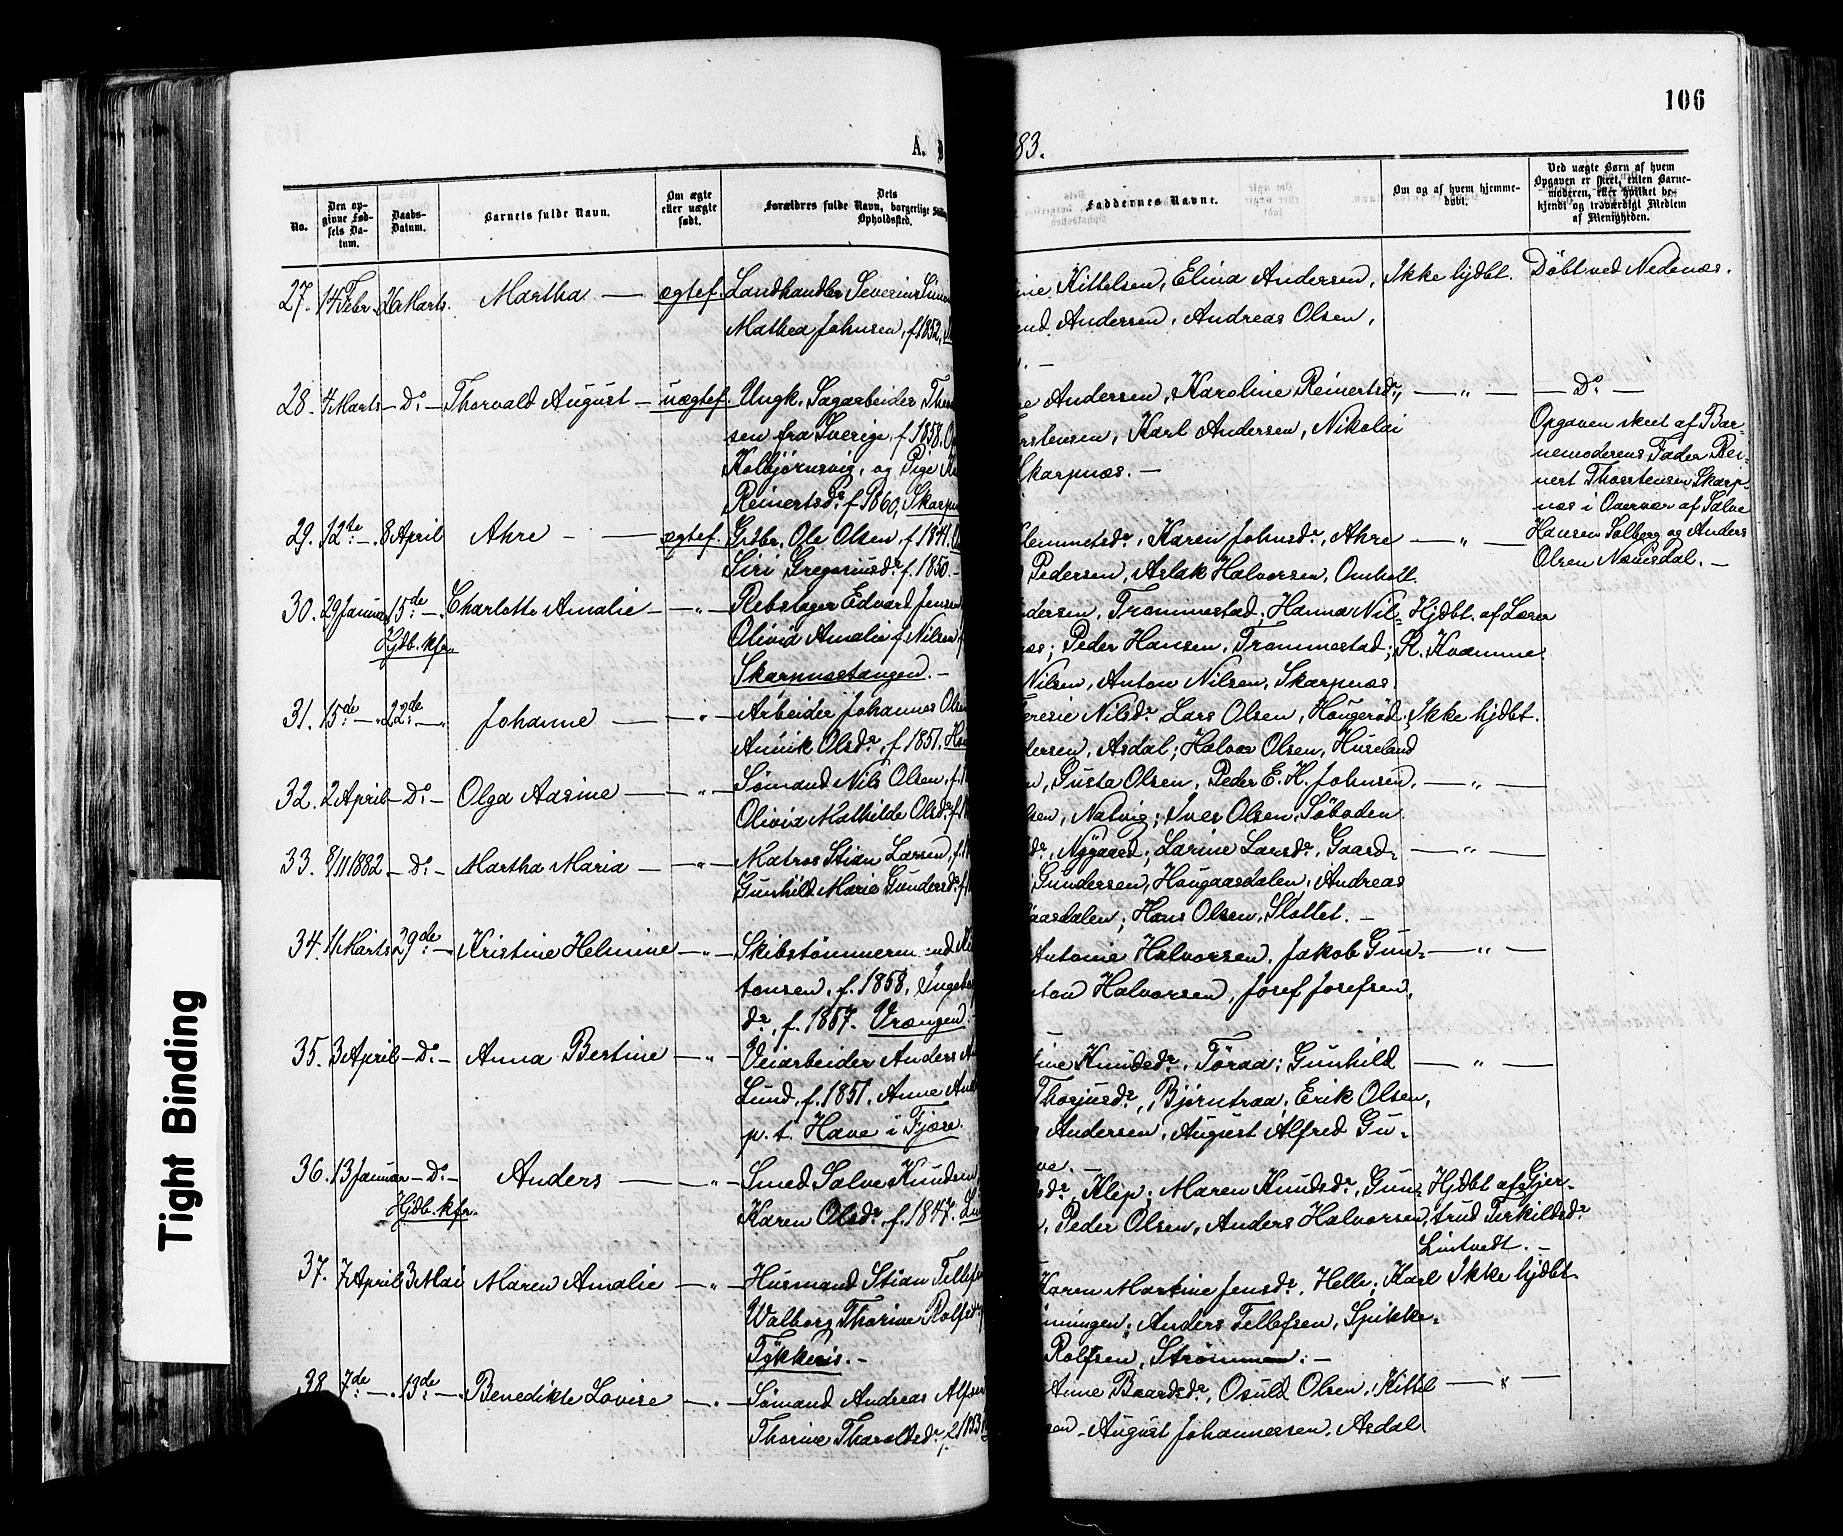 106
A.
83.
No.
Den op-
givne Fød-
sels Da-
tum.
Daabs-
Datum.
Barnets fulde Navn.
Om ægte
eller uægte
født.
Dets
Forældres fulde Navn, borgerlige
Opholdssted.
Faddernes Navne.
Om og af hvem hjemme-
døbt.
Ved uægte Børn af hvem
Opgaven er skeet, enten Barne-
moderen, eller hvilket be-
kjendt og troværdigt Medlem
af Menigheden.
27. 14 Febr. 26 Marts. Martha — ægtef. Landhandler Severin
Mathea Johnsen, f. 1852,
Kittelsen, Elina Andersen, Ikke hjdbt. Døbt ved Nedenæs.
Andersen, Andreas Olsen,
28. 4 Marts — Do. — Thorvald August — uægtef. Ungk. Sagarbeider
sen fra Sverige, f. 1858.
Kolbjørnsvig, og Pige
Reinertsdr. f. 1860, Skarpn
Andersen, Karoline Reinertsdr, — „ — — Do —
Karl Andersen, Nikolai
Skarpnæs. —
Opgaven skeet af Bar-
nemoderens Fader Rei-
nert Thorstensen Skarp-
næs i Overvær af Salve
Hansen Solberg og Anders
Olsen Næsdal. —
29. 12te — 8 April Ahre — ægtef. Grdbr. Ole Olsen, f. 1841.
Siri Gregoriusdr. f. 1850. —
Klemmetsdr. Karen Johnsdr., Ahre — „ —
Pedersen, Aslak Halvorsen, Omholt.
30. 29 Januar 15de — Charlotte Amalie — „ — Rebslager Edvard Jensen
Hjdb. kfr. Olivia Amalie f. Nilsen,
Skarpnæstangen. —
Trommestad; Hanna Nil- Hjdbt. af Lærer
Peder Hansen, Trommestad; K. Kvamme.
Nilsen, Anton Nilsen, Skarpnæs.
31. 15de — „ 22de — „ Johanne — „ — Arbeider Johannes Olsen
Annik Olsdr, f. 1851.
Nilsdr. Lars Olsen, Haugerød; Ikke hjdbt.
Asdal; Halvor Olsen, Huseland
32. 2 April — Do. — Olga Aasine — „ — Sømand Nils Olsen, f.
Olivia Mathilde Olsdr. f.
Gusta Olsen, Peder E. K. Johnsen, — „ —
Natvig; Iver Olsen, Søboden
33. 8/11 1882 — Do. — Martha Maria — „ — Matros Stian Larsen, f.
Gunhild Marie Gundersdr. f.
Nygaard, Larine Larsdr. Gaard- — „ —
Gundersen, Haugaasdalen, Andreas
Hans Olsen, Slottet. —
34. 11 Marts 29de — „ Kristine Helmine — „ — Skibstømmermand
tonsen, f. 1858, Ingeborg
dr, f. 1857. Vrængen.
Antonie Halvorsen, Jakob Gun- — „ —
Halvorsen, Josef Josefsen,
35. 3 April — Do. — Anna Bertine — „ — Veiarbeider Anders
Lund, f. 1851, Anne
p. t. Have i Fjære.
Knudsdr. Føraa; Gunhild — „ —
Thorjusdr, Bjørntraa; Erik Olsen,
Andersen, August Alfred Gu-
36. 13 Januar — Do. — Anders — „ — Smed Salve Knudsen
Hjdb. kfr. Karen Olsdr. f. 1847.
Klep; Maren Knudsdr. Gun- Hjdbt af Gjer-
Peder Olsen, Anders Halvorsen, trud Terkildsdr
Lintvedt. —
37. 7 April 3 Mai Maren Amalie — „ — Husmand Stian Tellefsen
Walborg Thorine Rolfsdr,
Tykkeris. —
Karen Martine Jensdr, Helle; Karl Ikke hjdbt
Anders Tellefsen, Spikke-
Rolfsen, Strømmen. —
38. 7de — „ 13de — „ Benedikte Lovise — „ — Sømand Andreas Alfsen
Thorine Tharaldsdr,
Anne Baardsdr, Osuld Olsen, Kittel — „ —
August Johannessen, Asdal.
Tight Binding